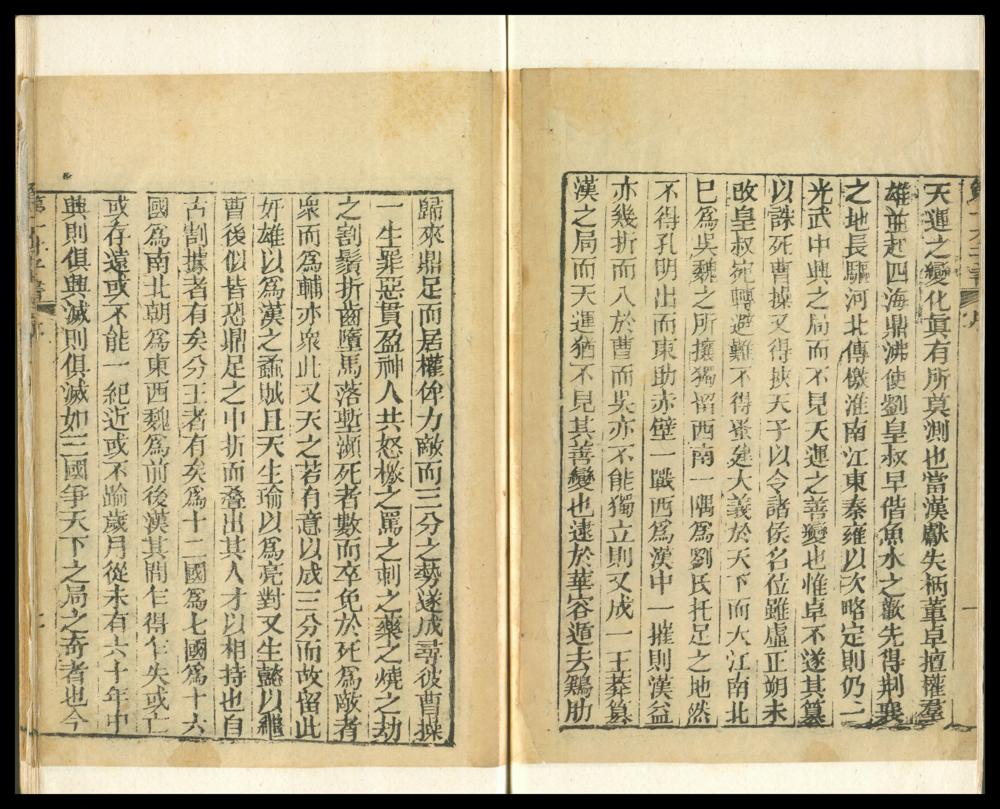 天運之變化眞有所莫測也當漢獻失柄董卓擅權羣
雄並起四海鼎沸使劉皇叔早偕魚水之歡先得荆襄
之地長驅河北傳檄淮南江東秦雍以次略定則仍一
光武中興之局而不見天運之善變也惟卓不遂其篡
以誅死曹操又得挾天子以令諸侯名位雖虛正朔未
改皇叔宛轉避難不得蚤建大義於天下而大江南北
已爲吳魏之所攘獨留西南一隅爲劉氏托足之地然
不得孔明出而東助赤壁一戰西爲漢中一摧則漢益
亦幾折而入於曹而吳亦不能獨立則又成一王莽篡
漢之局而天運猶不見其善變也逮於華容遁去鷄肋
歸來鼎足而居權侔力敵而三分之勢遂成尋彼曹操
一生罪惡貫盈神人共怒檄之罵之刺之藥之燒之劫
之割鬚折齒墮馬落塹瀕死者數而卒免於死爲敵者
衆而爲輔亦衆此又天之若有意以成三分而故留此
奸雄以爲漢之蟊賊且天生瑜以爲亮對又生懿以繼
曹後似皆恐鼎足之中折而疊出其人才以相持也自
古割據者有矣分王者有矣爲十二國爲七國爲十六
國爲南北朝爲東西魏爲前後漢其間乍得乍失或亡
或存遠或不能一紀近或不踰歲月從未有六十年中
興則俱興滅則俱滅如三國爭天下之局之奇者也今